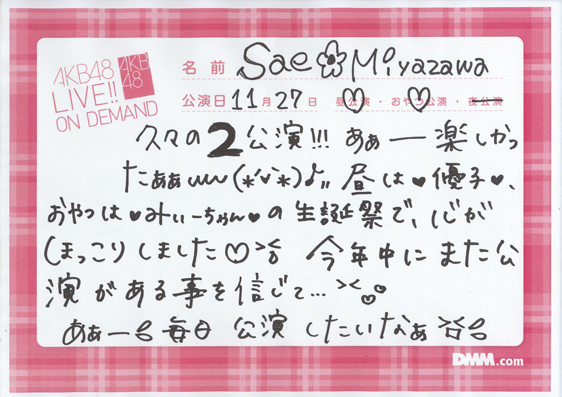 AKB48
LIVE!!
ON DEMAND
AKB
48
名前 Sae Miyazawa
公演日 11月27日 昼公演・おやつ公演・夜公演
久々の2公演!!! あぁー楽しかっ
たぁぁ(*'v`*)♪〃 昼は♥優子♥、
おやつは♥みぃーちゃん♥の生誕祭で、心が
ほっこりしました♡ 今年中にまた公
演がある事を信じて…><
あぁー 毎日 公演 したいなぁ
DMM.com